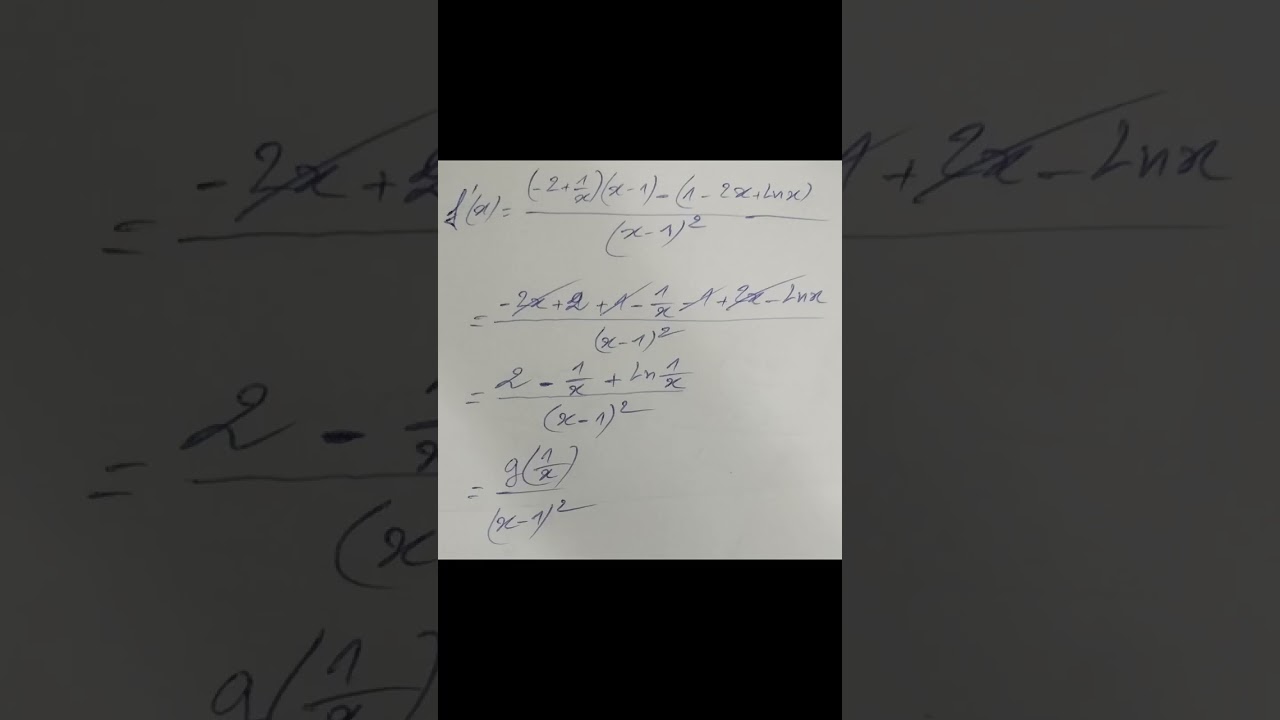 f'(x) = (-2+1/x)(x-1)-(1-2x+Lnx) / (x-1)²
= -2x+2+1-1/x-1+2x-Lnx / (x-1)²
= 2-1/x+Ln1/x / (x-1)²
= g(1/x) / (x-1)²